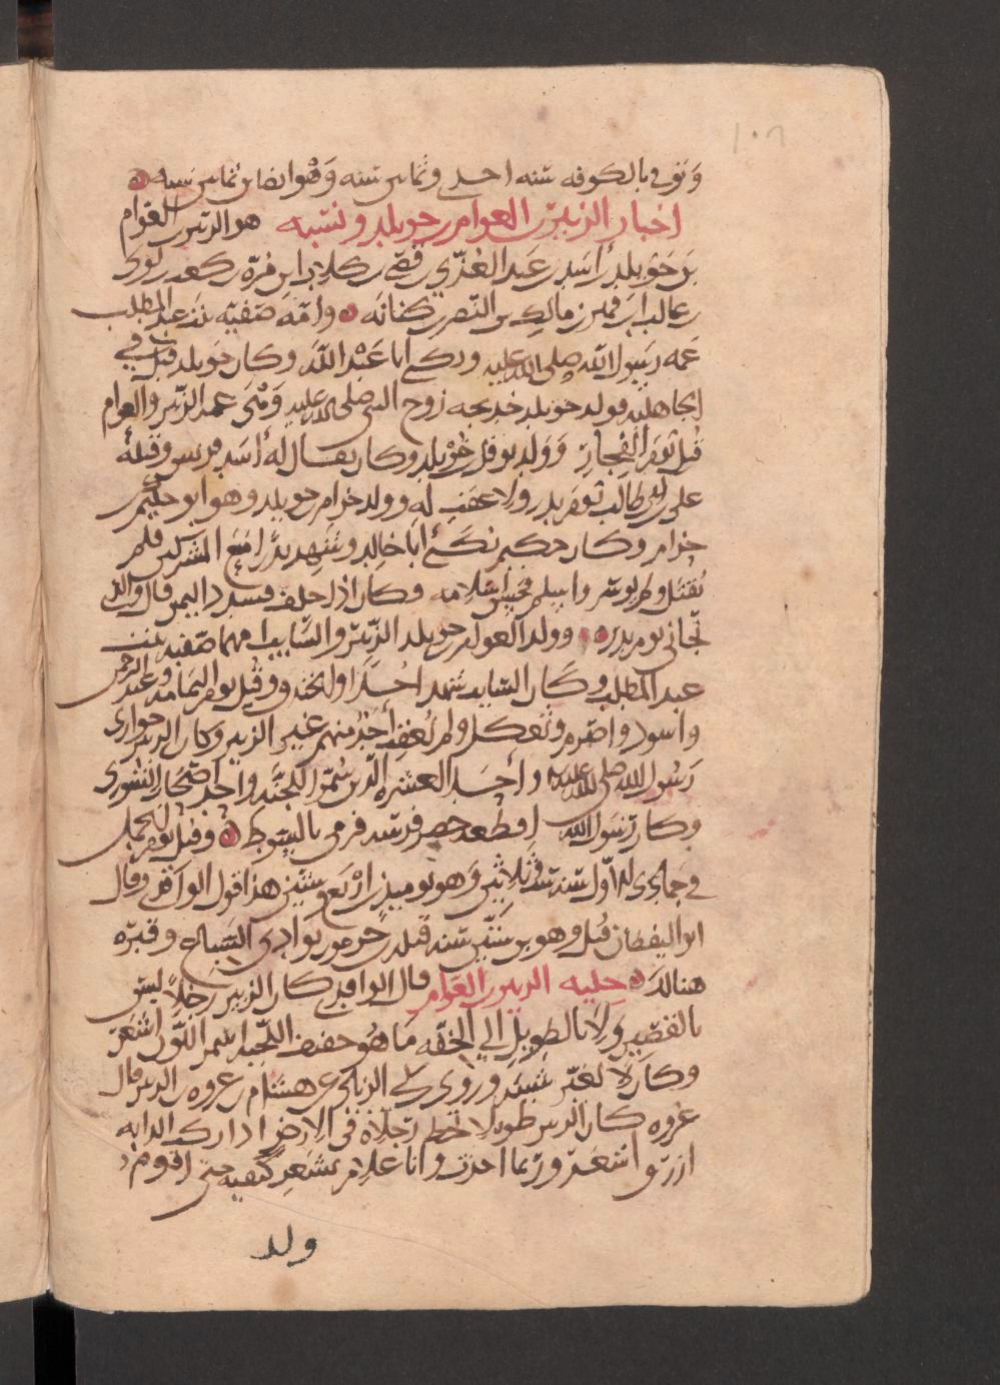 ١٠٦
وتوفي بالكوفه سنه احدى وثمانين سنه وهو ابن ثمانين سنه
اخبار الزبير بن العوام بن خويلد ونسبه هو الزبير بن العوام
بن خويلد بن أسد بن عبد العزي بن قصي بن كلاب ابن مرة بن كعب بن لوى
بن غالب ابن فهر بن مالك بن النضر بن كنانه وامه صفيه بنت عبد المطلب
عمه رسول الله صلى الله عليه ويكنى ابا عبد الله وكان خويلد قتل في
الجاهليه فولد خويلد خديجه زوج النبي صلى الله عليه وهى عمه الزبير والعوام
قتل يوم الفجار وولد نوفل بن خويلد وكان يقال له أسد قريش وقتله
علي بن ابي طالب يوم بدر ولا عقب له وولد حزام بن خويلد وهو ابو حكيم بن
حزام وكان حكيم يكنى أبا خالد وشهد بدرا مع المشركين فلم
يقتل ولم يوسر واسلم فحسن اسلامه وكان اذا حلف فشدد اليمين قال والذي
نجاني يوم بدر وولد العوام بن خويلد الزبير والسايب امهما صفيه بنت
عبد المطلب وكان السايب شهد احدا والخندق وقتل يوم اليمامه وعبد الرحمن
واسود واصرم وبعكك ولم يعقب أحد منهم غير الزبير وكان الزبير حواري
رسول الله صلى الله عليه وأحد العشره الذين سموا للجنه واحد اصحاب الشورى
وكان رسول الله اقطعه حضر فرسه فرمى بالسوط وقتل يوم الجمل
في جمادى الاول سنه ست وثلاثين وهو يوميذ ابن اربع وستين هذا قول الواقدي وقال
ابو اليقظان قتل وهو بن ستين سنه قتله بن جرموز بوادي السباع وقبره
هنالك حليه الزبير بن العوام قال الواقدي كان الزبير رجلا ليس
بالقصير ولا بالطويل الي الخفه ما هو خفيف اللحيه اسمر اللون اشعر
وكان لا يغير شيبه وروى بن ابي الزناد عن هشام بن عروه بن الزبير قال
عروه كان الزبير طويلا تخط رجلاه في الارض اذا ركب الدابه
ازرق اشعر وربما اخذت وانا غلام بشعر كتفيه حتى اقوم
ولد